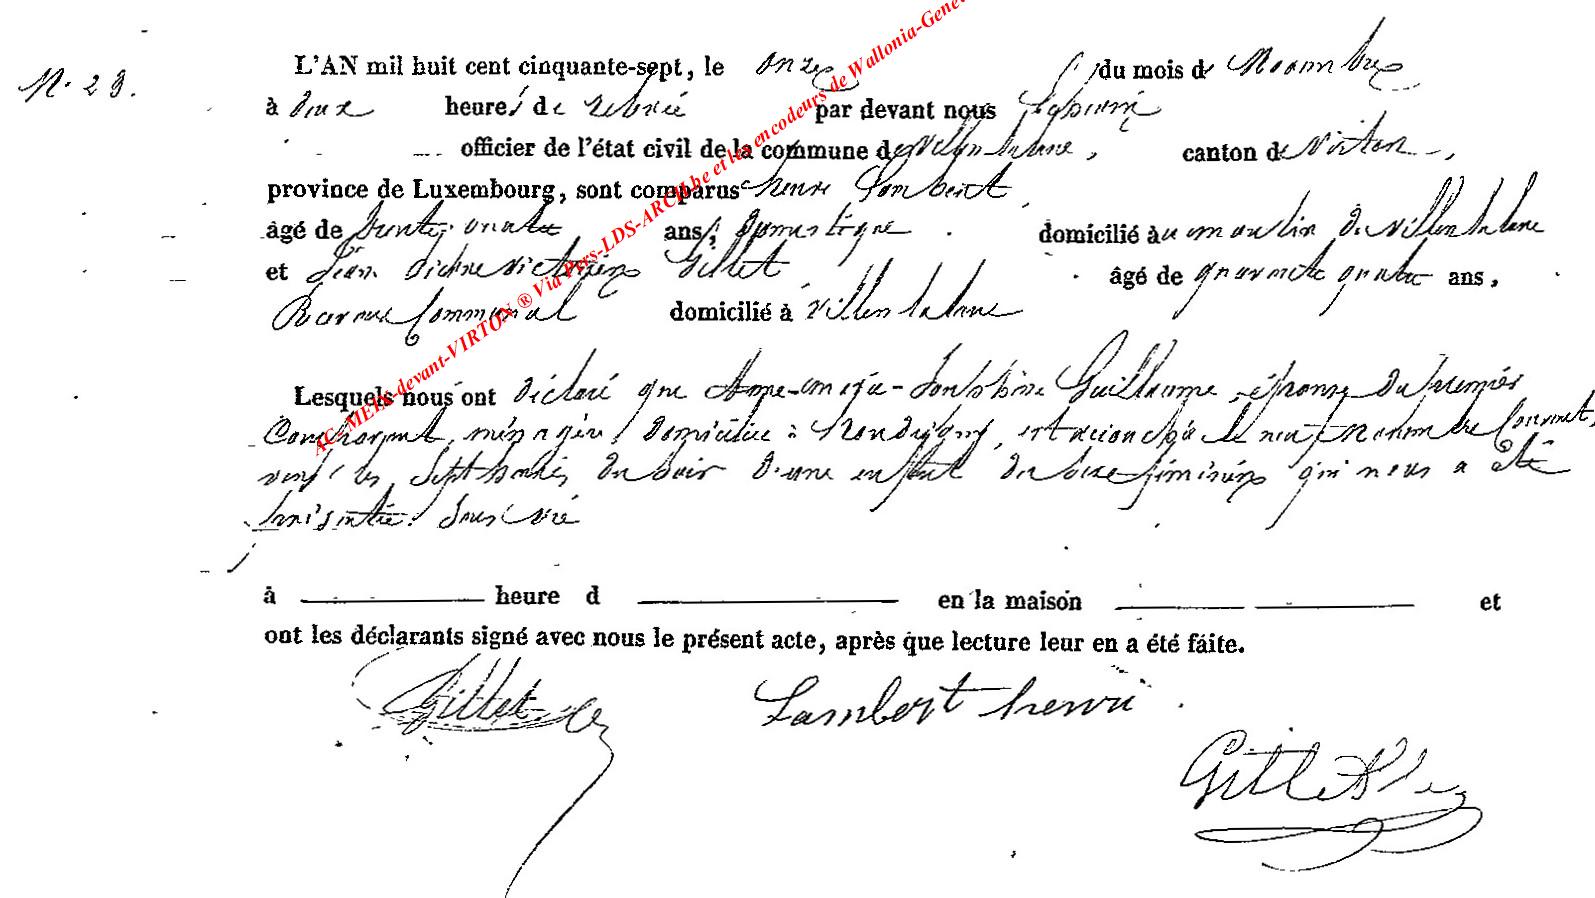 N. 23.
L'AN mil huit cent cinquante-sept, le onze du mois de Novembre
à deux heures de relevée par devant nous
officier de l'état civil de la commune de Villers la loue, canton de Virton,
province de Luxembourg, sont comparus henri Lambert
âgé de trente quatre ans, domestique domicilié à au moulin de villers la loue
et Jean Victorien Gillet âgé de quarante quatre ans,
Receveur Communal domicilié à villers la loue
Lesquels nous ont déclaré que Anne-marie-Joséphine Guillaume, épouse du premier
Comparant, ménagère, domiciliée à est accouchée le neuf novembre Courant,
vers les sept heures du soir d'une enfant du sexe féminin qui nous a été
présentée sans vie
à heure d en la maison et
ont les déclarants signé avec nous le présent acte, après que lecture leur en a été faite.
Gillet Lambert henri
Gillet
AC-MEIX-devant-VIRTON ® Via Pers-LDS-ARCH.be et les encodeurs de Wallonia-Gene